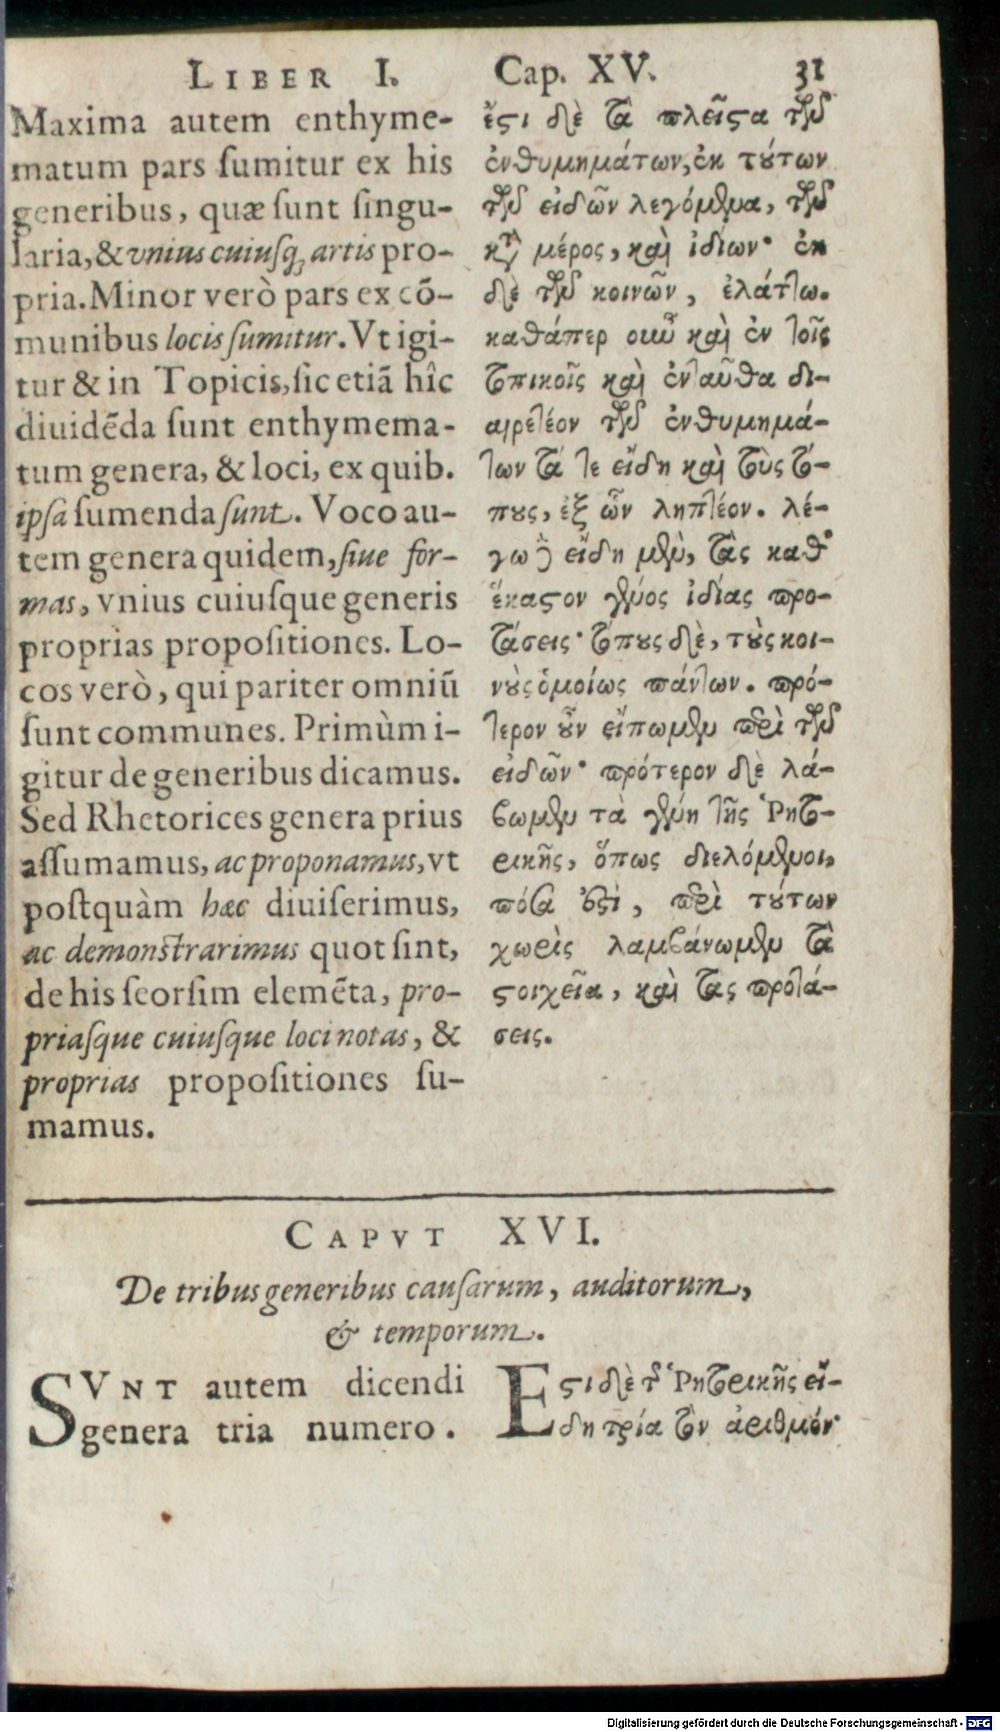 LIBER I. Cap. XV. 31
Maxima autem enthyme-
matum pars ſumitur ex his
generibus, quæ ſunt ſingu-
laria, & vnius cuiuſq; artis pro-
pria. Minor verò pars ex cõ-
munibus locis ſumitur. Vt igi-
tur & in Topicis, ſic etiã hîc
diuidẽda ſunt enthymema-
tum genera, & loci, ex quib.
ipſa ſumenda ſunt. Voco au-
tem genera quidem, ſiue for-
mas, vnius cuiuſque generis
proprias propoſitiones. Lo-
cos verò, qui pariter omniũ
ſunt communes. Primùm i-
gitur de generibus dicamus.
Sed Rhetorices genera prius
aſſumamus, ac proponamus, vt
poſtquàm hæc diuiſerimus,
ac demonſtrarimus quot ſint,
de his ſeorſim elemẽta, pro-
priaſque cuiuſque loci notas, &
proprias propoſitiones ſu-
mamus.
ἔϛι δὲ τὰ πλεῖϛα τῶν
ἐνθυμημάτων, ἐκ τούτων
τῶν εἰδῶν λεγόμενα, τῶν
κατὰ μέρος, καὶ ἰδίων· ἐκ
δὲ τῶν κοινῶν, ἐλάττω.
καθάπερ οὖν καὶ ἐν τοῖς
τοπικοῖς καὶ ἐνταῦθα δι-
αιρετέον τῶν ἐνθυμημά-
των τά τε εἴδη καὶ τοὺς τό-
πους, ἐξ ὧν ληπτέον. λέ-
γω δὲ εἴδη μὲν, τὰς καθ᾽
ἕκαϛον γένος ἰδίας προ-
τάσεις· τόπους δὲ, τοὺς κοι-
νοὺς ὁμοίως πάντων. πρό-
τερον οὖν εἴπωμεν περὶ τῶν
εἰδῶν· πρότερον δὲ λά-
βωμεν τὰ γένη τῆς Ῥητο-
ρικῆς, ὅπως διελόμενοι,
πόσα ἐϛί, περὶ τούτων
χωρὶς λαμβάνωμεν τὰ
ϛοιχεῖα, καὶ τὰς προτά-
σεις.
CAPVT XVI.
De tribus generibus cauſarum, auditorum,
& temporum.
SVNT autem dicendi
genera tria numero.
Εϛι δὲ τῆς Ῥητορικῆς εἴ-
δη τρία τὸν ἀριθμόν·
Digitalisierung gefördert durch die Deutsche Forschungsgemeinschaft - DFG